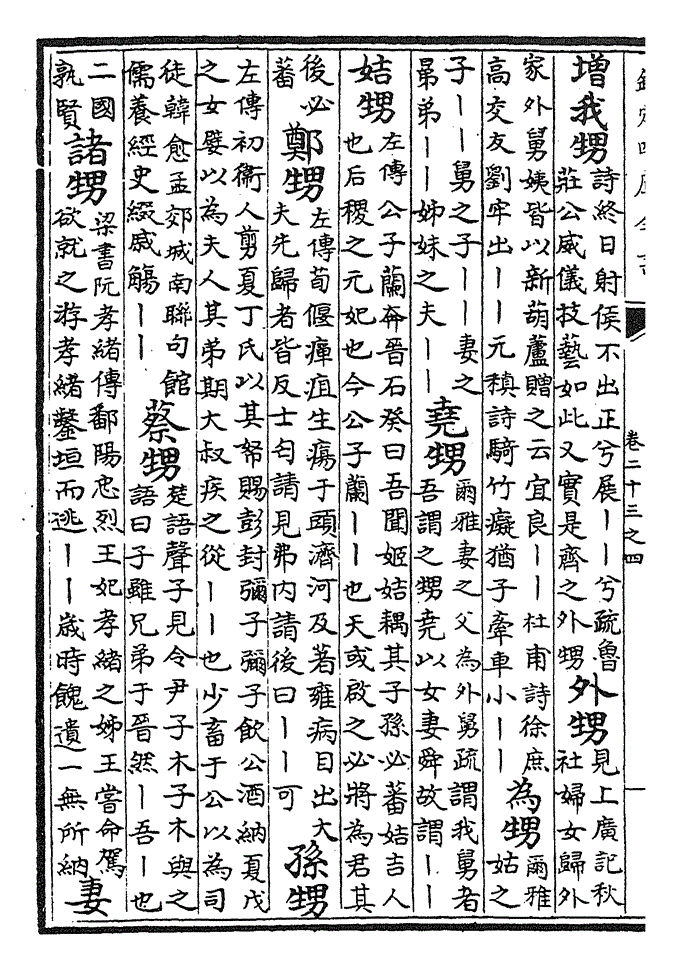 卷二十三之四
一
增我甥
詩終日射侯不出正兮展——兮疏魯
莊公威儀技藝如此又實是齊之外甥
外甥
見上廣記秋
社婦女歸外
家外舅姨皆以新葫蘆贈之云宜良——杜甫詩徐庶
高交友劉牢出——元稹詩騎竹癡猶子牽車小——
為甥
爾雅
姑之
子——舅之子——妻之
晜弟——姊妹之夫——
堯甥
爾雅妻之父為外舅疏謂我舅者
吾謂之甥堯以女妻舜故謂——
姞甥
左傳公子蘭奔晉石癸曰吾聞姬姞耦其子孫必蕃姞吉人
也后稷之元妃也今公子蘭——也天或啟之必將為君其
後必
蕃
鄭甥
左傳荀偃癉疽生瘍于頭濟河及著雍病目出大
夫先歸者皆反士匄請見弗内請後曰——可
孫甥
左傳初衞人剪夏丁氏以其帑賜彭封彌子彌子飲公酒納夏戊
之女嬖以為夫人其弟期大叔疾之從——也少畜于公以為司
徒韓愈孟郊城南聯句館
儒養經史綴戚觴——
蔡甥
楚語聲子見令尹子木子木與之
語曰子雖兄弟于晉然—吾—也
二國
孰賢
諸甥
梁書阮孝緒傳鄱陽忠烈王妃孝緒之姊王嘗命駕
欲就之游孝緒鑿垣而逃——歲時餽遺一無所納
妻